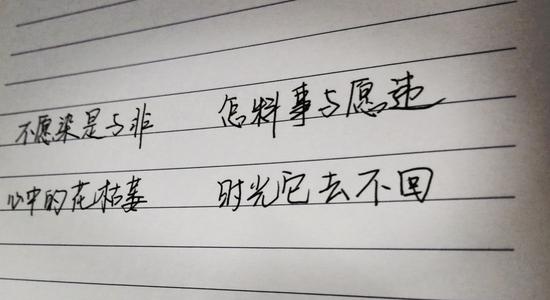 不愿染是与非 怎料事与愿违
心中的花枯萎 时光它去不回